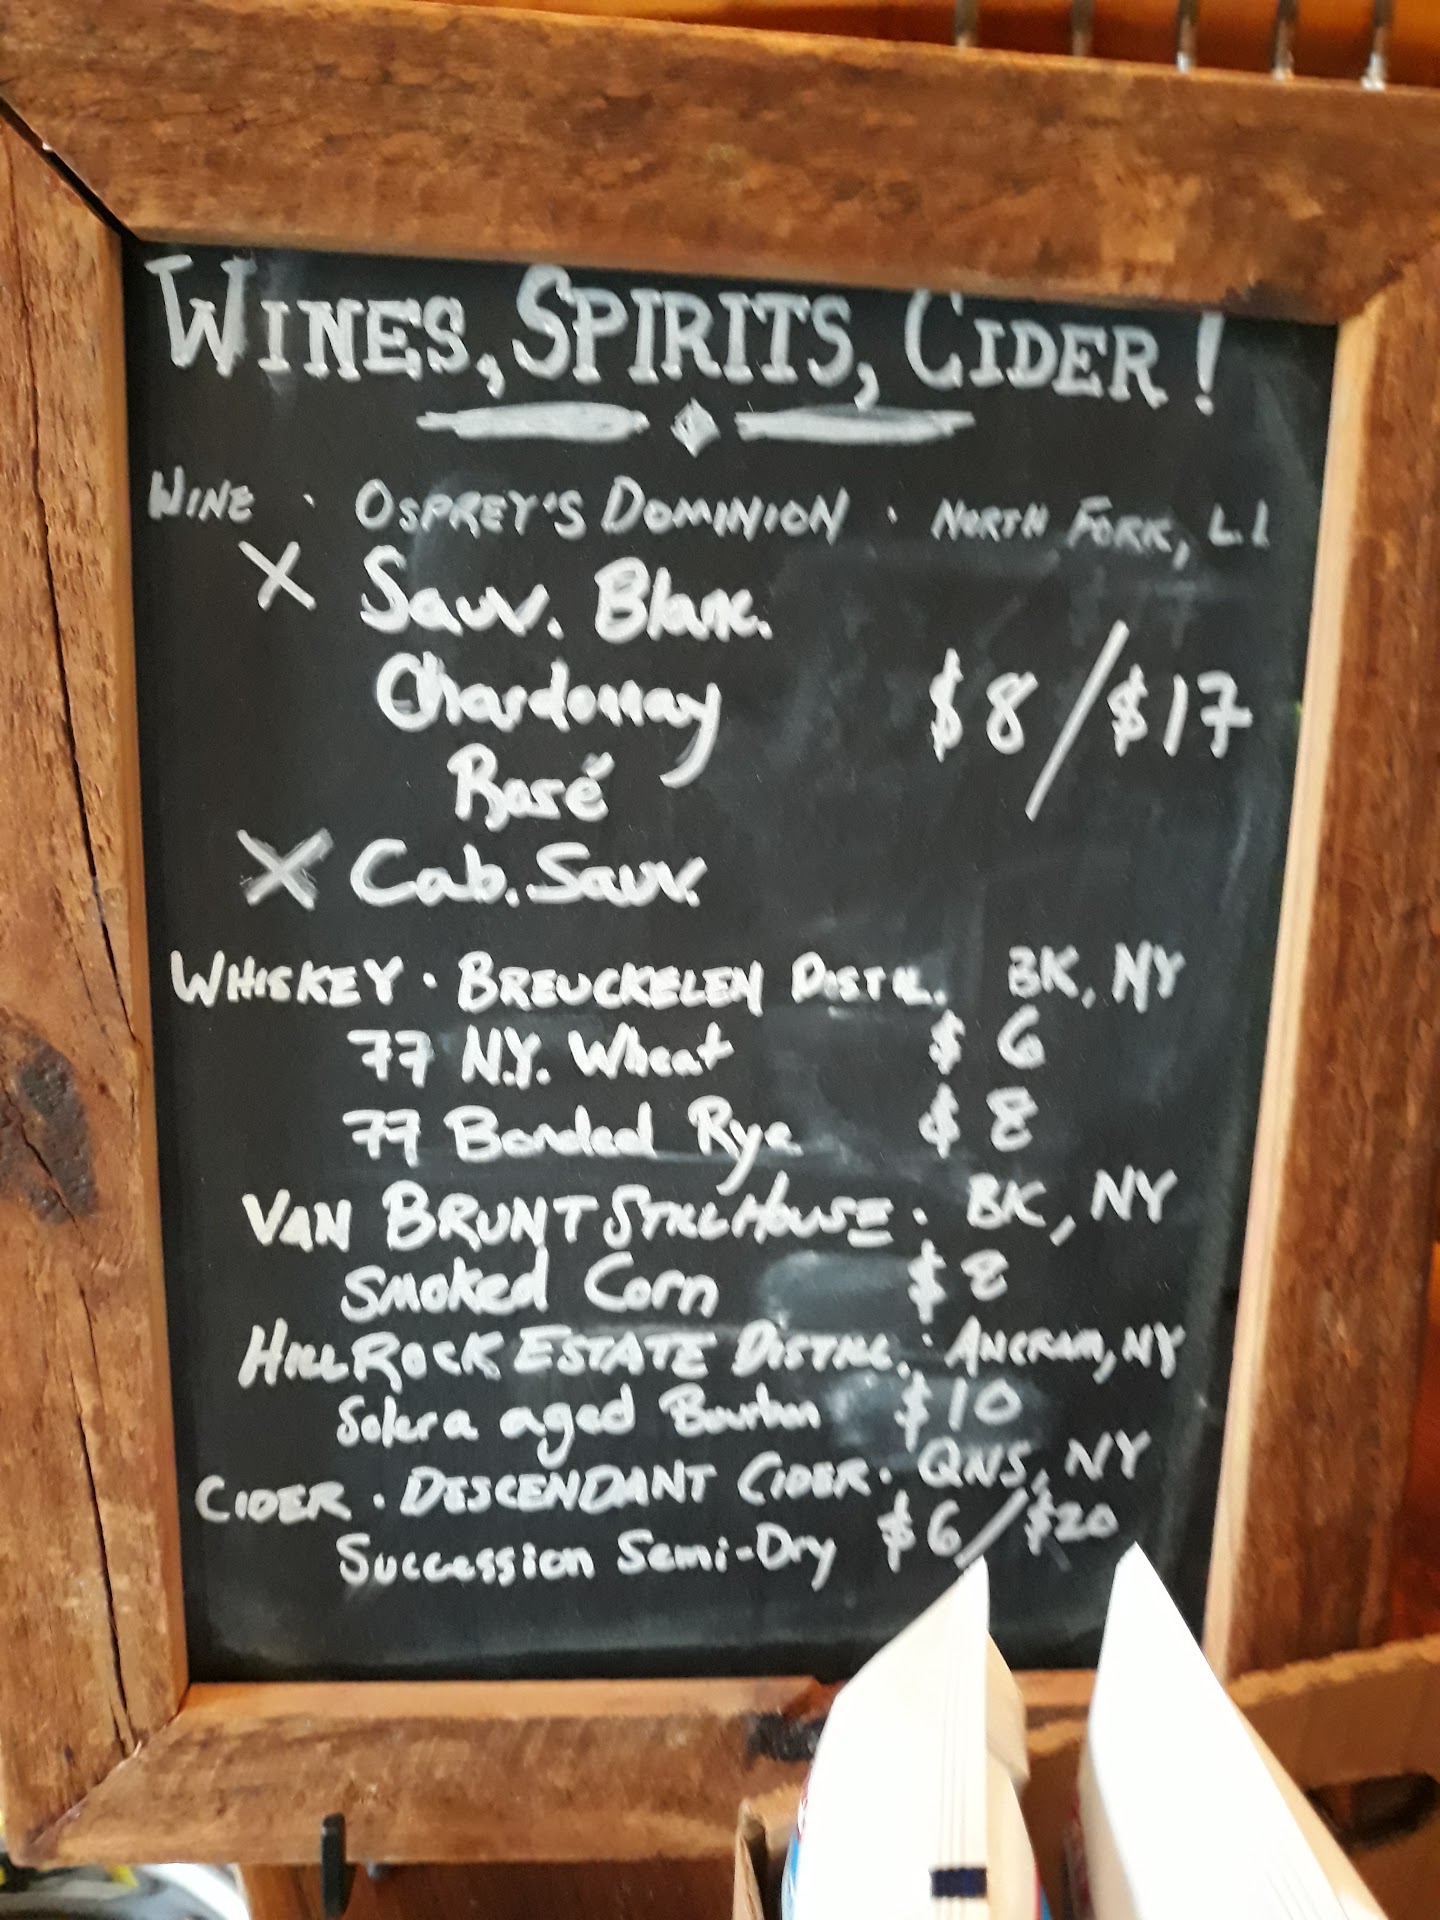 WINES, SPIRITS, CIDER!
WINE · OSPREY'S DOMINION · NORTH FORK, L.I
X Sauv. Blanc.
Chardonnay $8/$17
Rosé
X Cab. Sauv.
WHISKEY · BREUCKELEN DISTIL. BK, NY
77 N.Y. Wheat $6
77 Bonded Rye $8
VAN BRUNT STILLHOUSE · BK, NY
Smoked Corn $8
HILLROCK ESTATE DISTILL. · ANCRAM, NY
Solera aged Bourbon $10
CIDER · DESCENDANT CIDER · QNS, NY
Succession Semi-Dry $6/$20